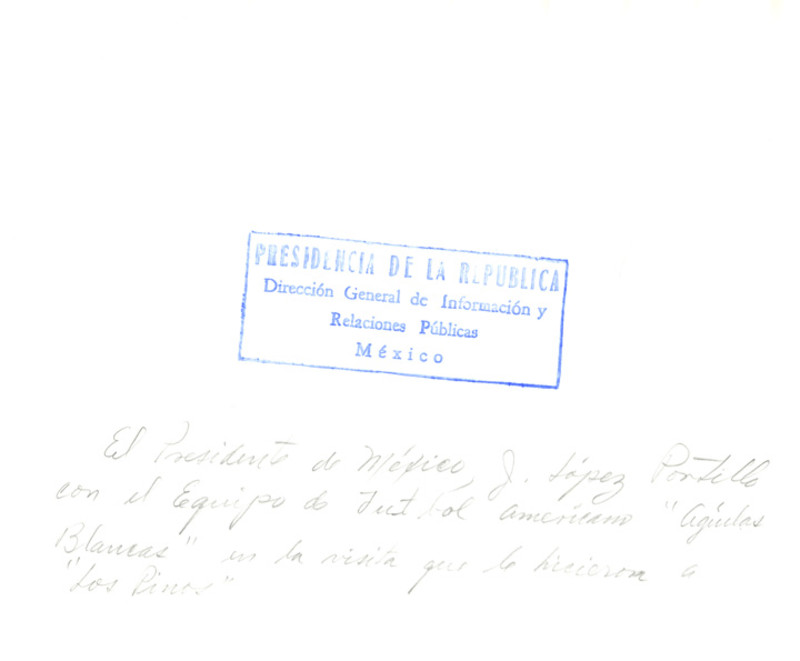 PRESIDENCIA DE LA REPUBLICA
Dirección General de Información y
Relaciones Públicas
México
El Presidente de México, J. López Portillo
con el Equipo de Fut bol americano "Aguilas
Blancas" en la visita que le hicieron a
"Los Pinos"